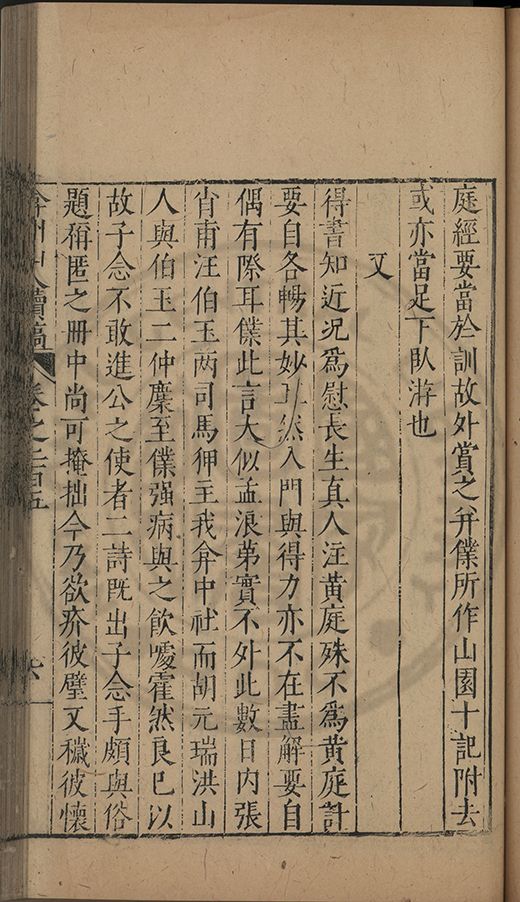 庭經要當於訓故外賞之弁僕所作山園十記附去
或亦當足下臥游也
又
得書知近况爲慰長生真人注黃庭殊不爲黃庭計
要自各暢其妙耳然入門與得力亦不在盡解要自
偶有際耳僕此言大似孟浪第實不外此數日內張
肖甫汪伯玉两司馬狎主我弇中社而胡元瑞洪山
人與伯玉二仲麇至僕强病與之飲噯霍然良已以
故子念不敢進公之使者二詩旣出子念手頗與俗
題稱匿之冊中尚可掩拙今乃欲疥彼璧又穢彼懷
弇州山人續稿 卷之二百五
六